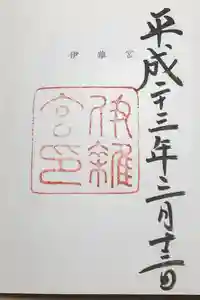 平成二十三年三月十三日
伊雜宮
伊雜
宮印